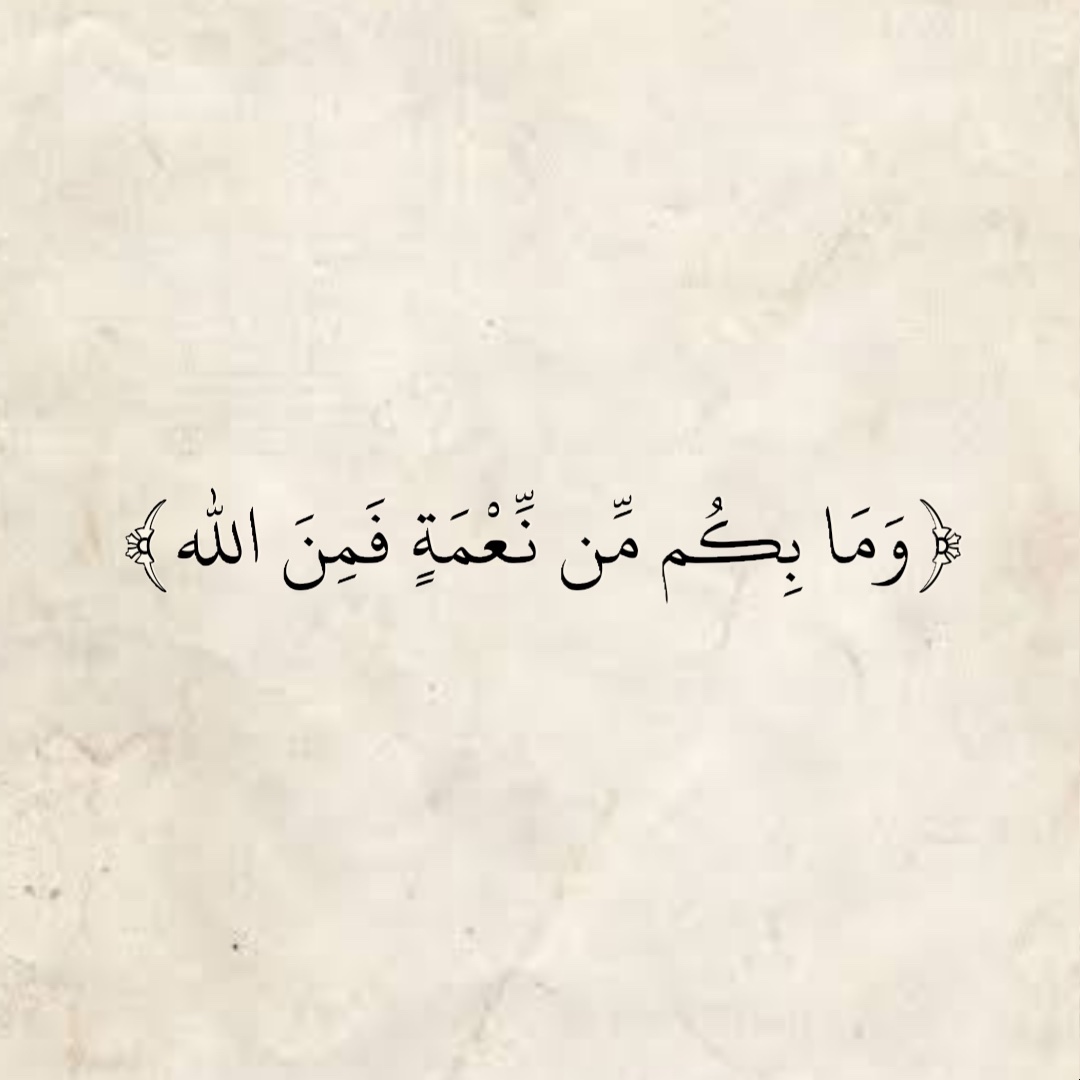 ﴿وَمَا بِكُم مِّن نِّعْمَةٍ فَمِنَ اللّٰه﴾